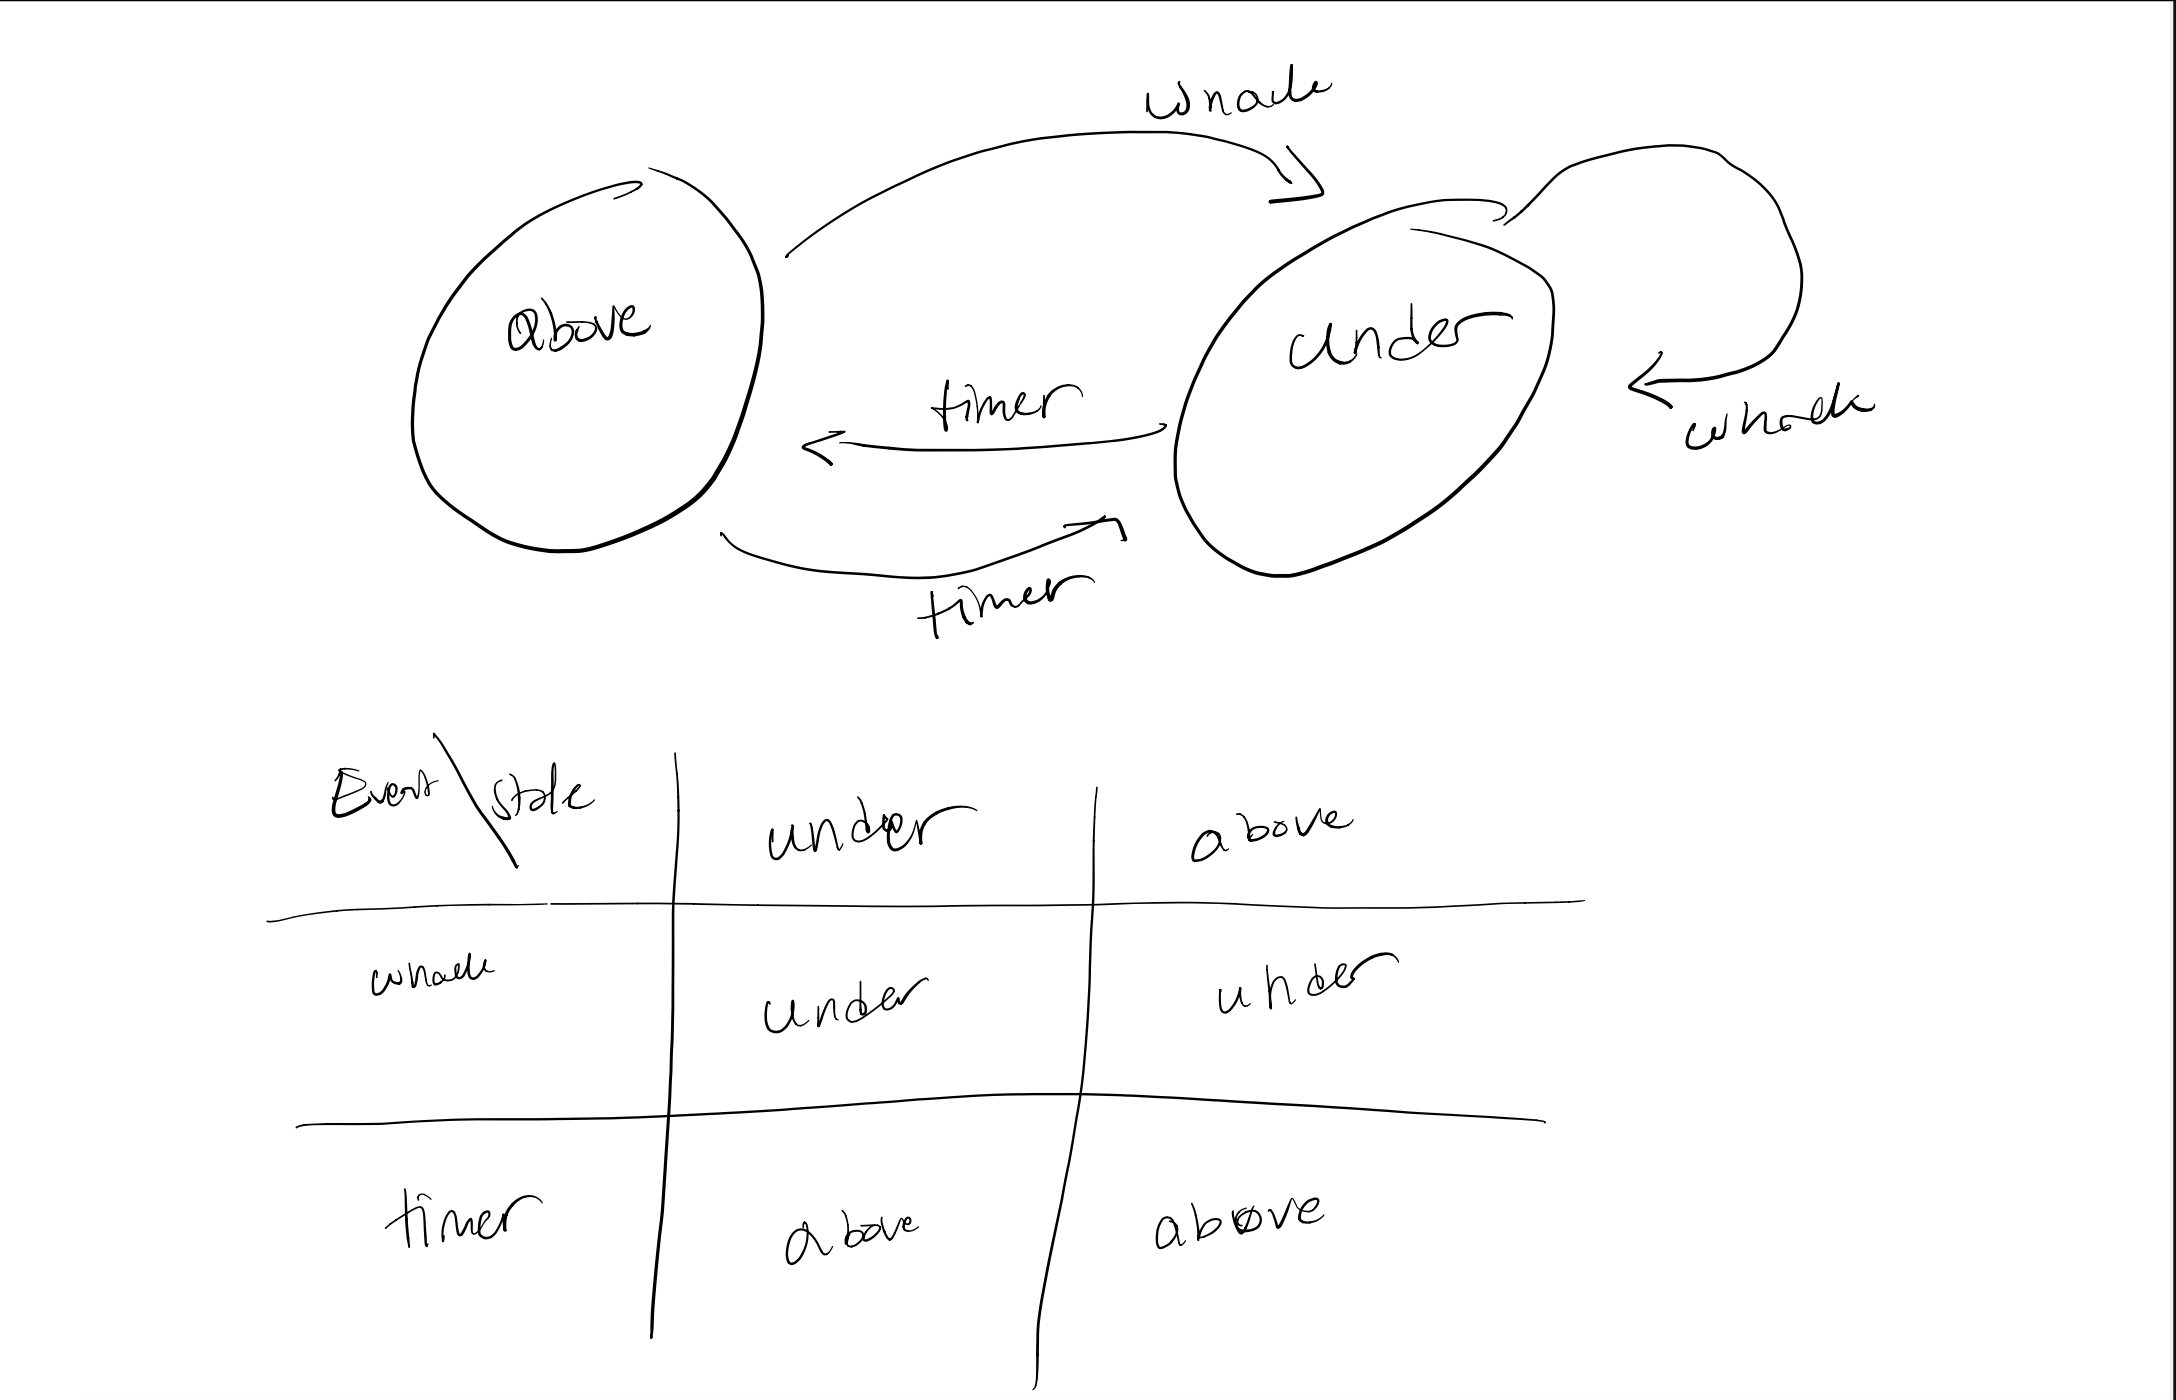 whack
above
under
timer
whack
timer
Event\state under above
whack under under
timer above above